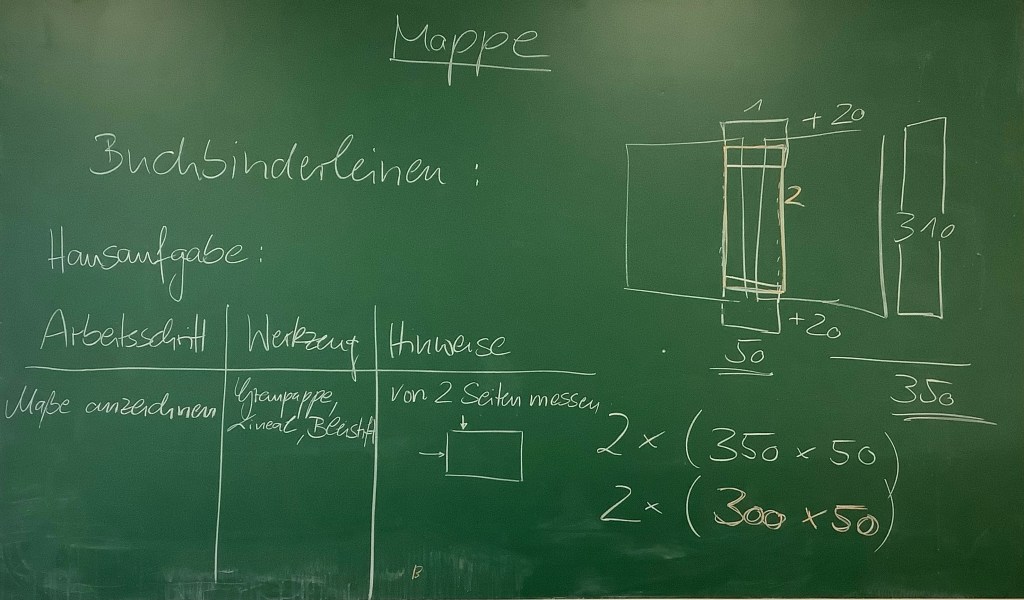 Mappe
Buchbinderleinen :
Hausaufgabe :
Arbeitsschritt Werkzeug Hinweise
Maße anzeichnen
Graupappe,
Lineal, Bleistift
von 2 Seiten messen
1
+ 20
2
310
+20
50
350
2 × (350 × 50)
2 × (300 × 50)
B